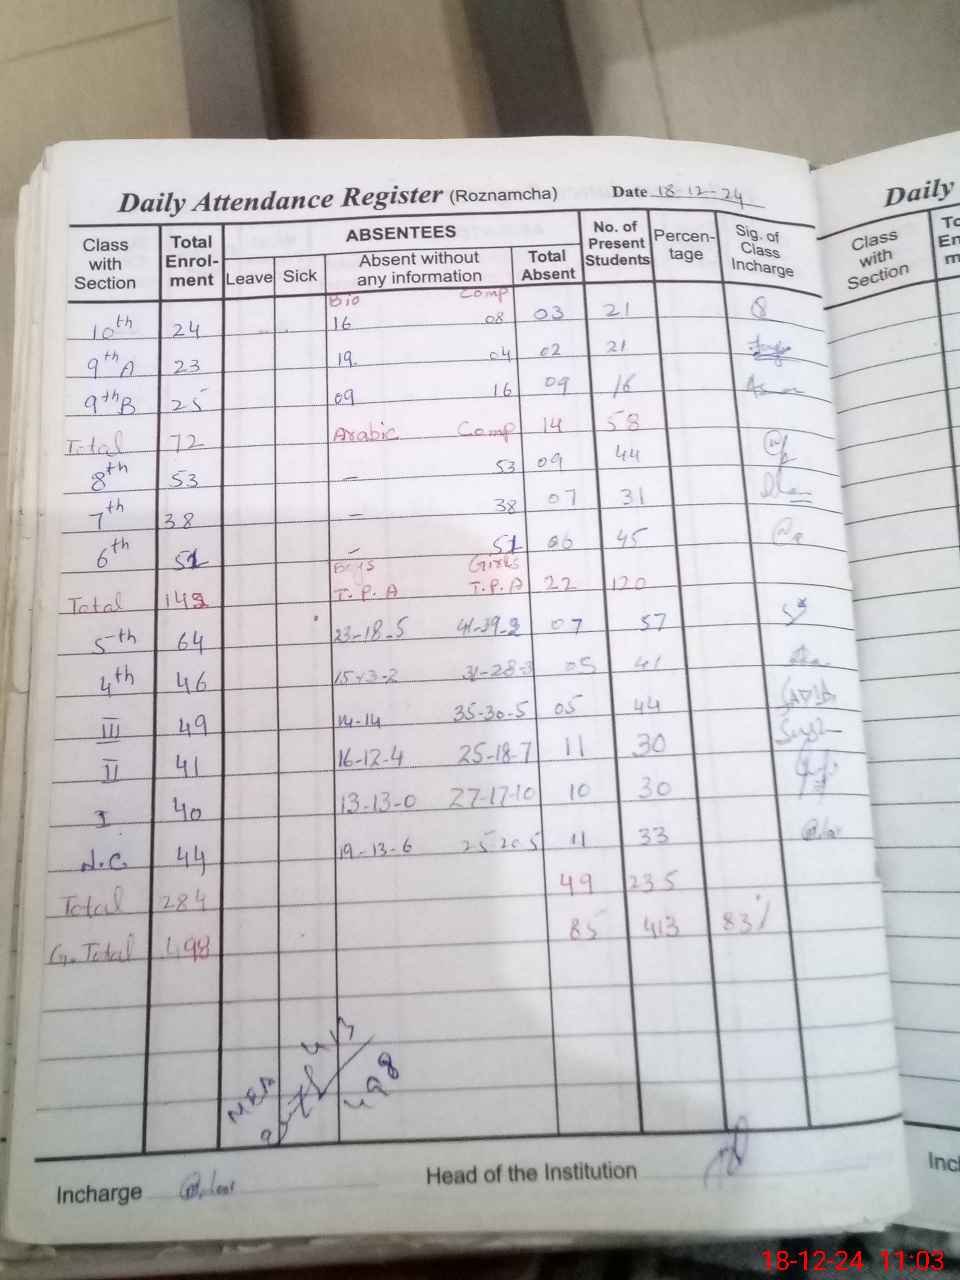 Daily Attendance Register (Roznamcha) Date 18-12-24
Class with Section Total Enrol-ment ABSENTEES Leave Sick Absent without any information Total Absent No. of Present Students Percen-tage Sig. of Class Incharge
Bio Comp
10th 24 16 08 03 21
9th A 23 19 04 02 21
9th B 25 09 16 09 16
Total 72 Arabic Comp 14 58
8th 53 – 53 09 44
7th 38 – 38 07 31
6th 51 – 51 06 45
Boys Girls
Total 142 T.P.A T.P.A 22 120
5th 64 23-18-5 41-39-2 07 57
4th 46 15-13-2 31-28-3 05 41
III 49 14-14 35-30-5 05 44 SADIA
II 41 16-12-4 25-18-7 11 30
I 40 13-13-0 27-17-10 10 30
N.C 44 19-13-6 25 20 5 11 33
Total 284 49 235
G. Total 498 85 413 83%
MEA
413
498
Incharge Head of the Institution
Daily
Class with Section
Inc
18-12-24 11:03